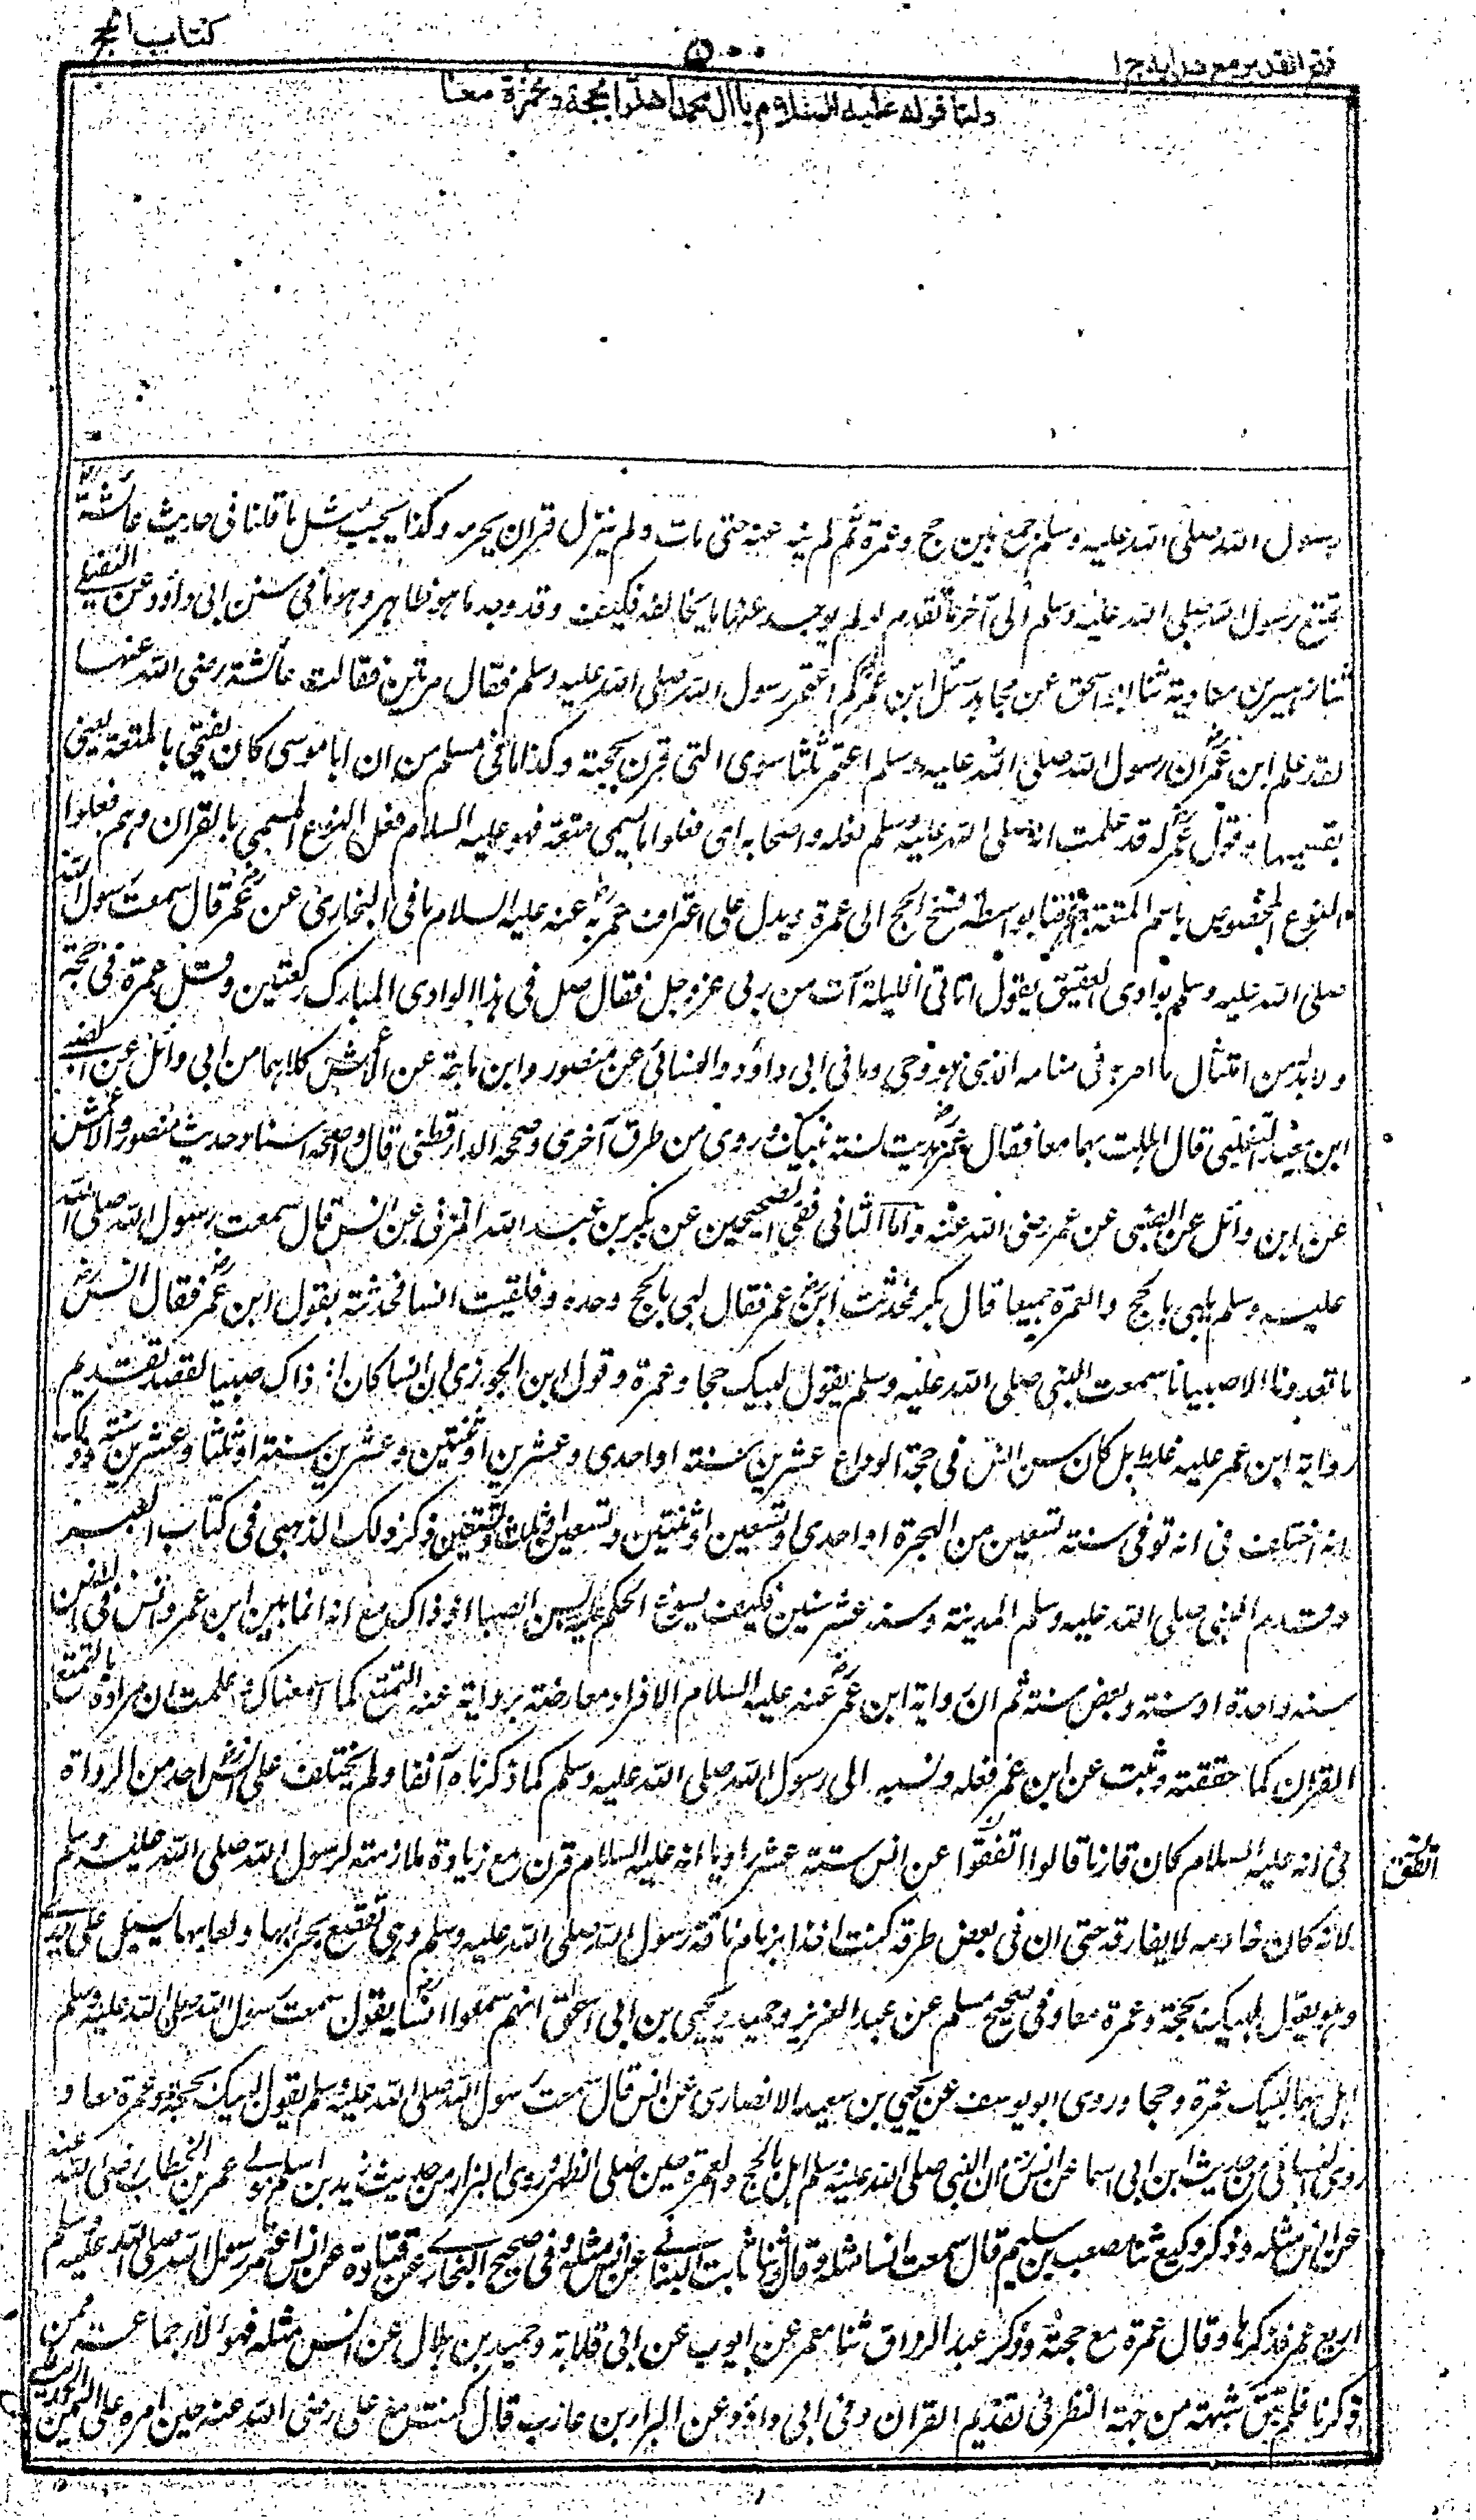 فتح القدير مع هدايه ج ا
٥٠٠
كتاب الحج
ولنا قوله عليه السلام يا آل محمد اهلوا بحجة وعمرة معا
رسول الله صلى الله عليه وسلم جمع بين حج وعمرة ثم لم ينه عنه حتى مات ولم ينزل قران يحرمه وكذا يجب مثل ما قلنا فى حديث عائشة رض
تمتع رسول الله صلى الله عليه وسلم الى آخر ما تقدم لو لم يوجد عنها ما يخالفه فكيف وقد وجد ما هو ظاهر وهو ما فى سنن ابى داؤد عن النفيلى
ثنا زهير بن معاوية ثنا ابو اسحق عن مجاهد سئل ابن عمر كم اعتمر رسول الله صلى الله عليه وسلم فقال مرتين فقالت عائشة رضى الله عنها
لقد علم ابن عمر ان رسول الله صلى الله عليه وسلم اعتمر ثلثا سوى التى قرن بحجته وكذا ما فى مسلم من ان ابا موسى كان يفتى بالمتعة يعنى
بقسميها وقول عمر له قد علمت انه صلى الله عليه وسلم فعله واصحابه اى فعلوا ما يسمى متعة فهو عليه السلام فعل النوع المسمى بالقران وهم فعلوا
النوع المخصوص باسم المتعة فى عرفنا بواسطة فسخ الحج الى عمرة ويدل على اعتراف عمر به عنه عليه السلام ما فى البخارى عن عمر قال سمعت رسول الله
صلى الله عليه وسلم بوادى العقيق يقول اتانى الليلة آت من ربى عز وجل فقال صل فى هذا الوادى المبارك ركعتين وقل عمرة فى حجة
ولا بد من امتثال ما امر به فى منامه الذى هو وحى وما فى ابى داؤد والنسائى عن منصور وابن ماجة عن الاعمش كلاهما من ابى وائل عن الصبى
ابن معبد التغلبى قال اهللت بهما معا فقال عمر هديت لسنة نبيك وروى من طرق آخرى وصححه الدارقطنى قال واصحه اسنادا حديث منصور والاعمش
عن ابن وائل عن الصبى عن عمر رضى الله عنه واما الثانى ففى الصحيحين عن بكير بن عبد الله المزنى عن انس قال سمعت رسول الله صلى الله
عليه وسلم يلبى بالحج والعمرة جميعا قال بكر فحدثت ابن عمر فقال لبى بالحج وحده وفلقيت انسا فحدثته بقول ابن عمر فقال انس رض
ما تعدوننا الا صبيانا سمعت النبى صلى الله عليه وسلم يقول لبيك حجا وعمرة وقول ابن الجوزى ان انسا كان اذ ذاك صبيا لقصد تقديم
رواية ابن عمر عليه غلط بل كان سن انس فى حجة الوداع عشرين سنة او احدى وعشرين او ثنتين وعشرين سنة او ثلثا وعشرين سنة وذلك
انه اختلف فى انه توفى سنة تسعين من الهجرة او احدى وتسعين او ثنتين وتسعين او ثلث وتسعين ذكر ذلك الذهبى فى كتاب العبر
وقد قدم النبى صلى الله عليه وسلم المدينة وسنه عشر سنين فكيف يسوغ الحكم عليه بسن الصبا اذ ذاك مع انه انما بين ابن عمر وانس فى السن
سنة واحدة او سنة وبعض سنة ثم ان رواية ابن عمر عنه عليه السلام الافراد معارضة بروايته عنه التمتع كما اسمعناك وعلمت ان مراده بالتمتع
القران كما حققته وثبت عن ابن عمر فعله ونسبه الى رسول الله صلى الله عليه وسلم كما ذكرناه آنفا ولم يختلف على انس احد من الرواة
فى انه عليه السلام كان قارنا قالوا اتفقوا عن انس ستة عشر راويا انه عليه السلام قرن مع زيادة ملازمته لرسول الله صلى الله عليه وسلم
اتفق
لانه كان خادمه لا يفارقه حتى ان فى بعض طرقه كنت اخذا بزمام ناقة رسول الله صلى الله عليه وسلم وهى تقصع بجرانها ولعابها يسيل على يدى
وهو يقول لبيك بحجة وعمرة معا وفى صحيح مسلم عن عبد العزيز وحميد ويحيى بن ابى اسحق انهم سمعوا انسا يقول سمعت رسول الله صلى الله عليه وسلم
اهل بهما لبيك عمرة وحجا وروى ابو يوسف عن يحيى بن سعيد الانصارى عن انس قال سمعت رسول الله صلى الله عليه وسلم يقول لبيك بحجة وعمرة معا و
روى النسائى من حديث ابن ابى اسما عن انس ان النبى صلى الله عليه وسلم اهل بالحج والعمرة حين صلى الظهر وروى البزار من حديث زيد بن اسلم مولى عمر بن الخطاب رضى الله عنه
عن انس مثله وذكر وكيع ثنا مصعب بن سليم قال سمعت انسا مثله وقال وثنا ثابت البنانى عن انس مثله وفى صحيح البخارى عن قتادة عن انس اعتمر رسول الله صلى الله عليه وسلم
اربع عمر فذكرها وقال عمرة مع حجته وذكر عبد الرزاق ثنا معمر عن ايوب عن ابى قلابة وحميد بن هلال عن انس مثله فهؤلاء جماعة ممن
ذكرنا فلم يبق شبهة من جهة النظر فى تقديم القران وفى ابى داؤد عن البراء بن عازب قال كنت مع على رضى الله عنه حين امره على اليمن الحديث